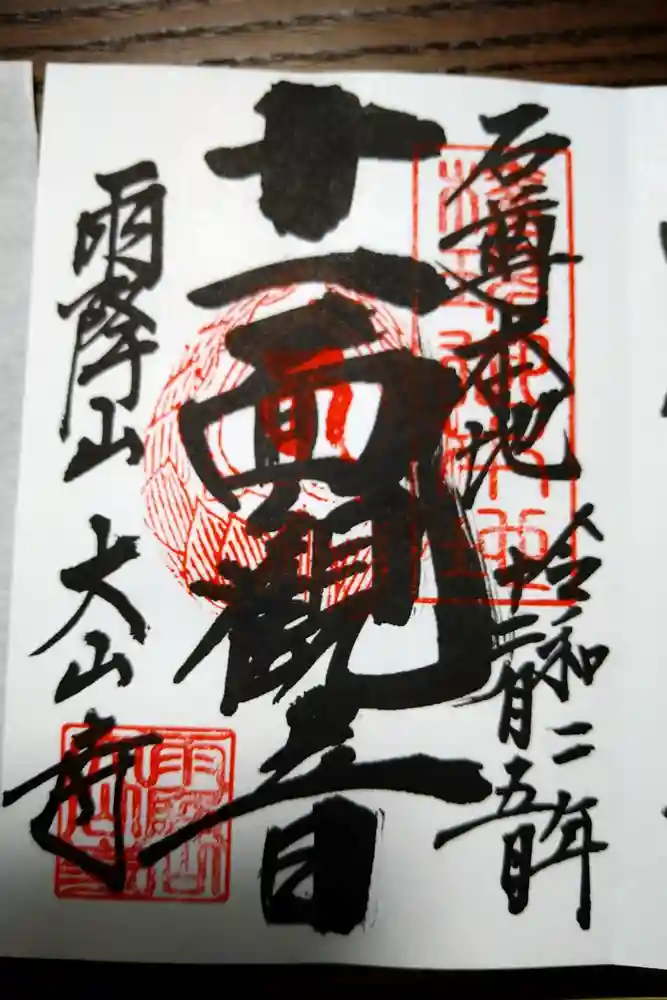 石尊本地
令和二年
十二月五日
十一面觀音
雨降山 大山寺